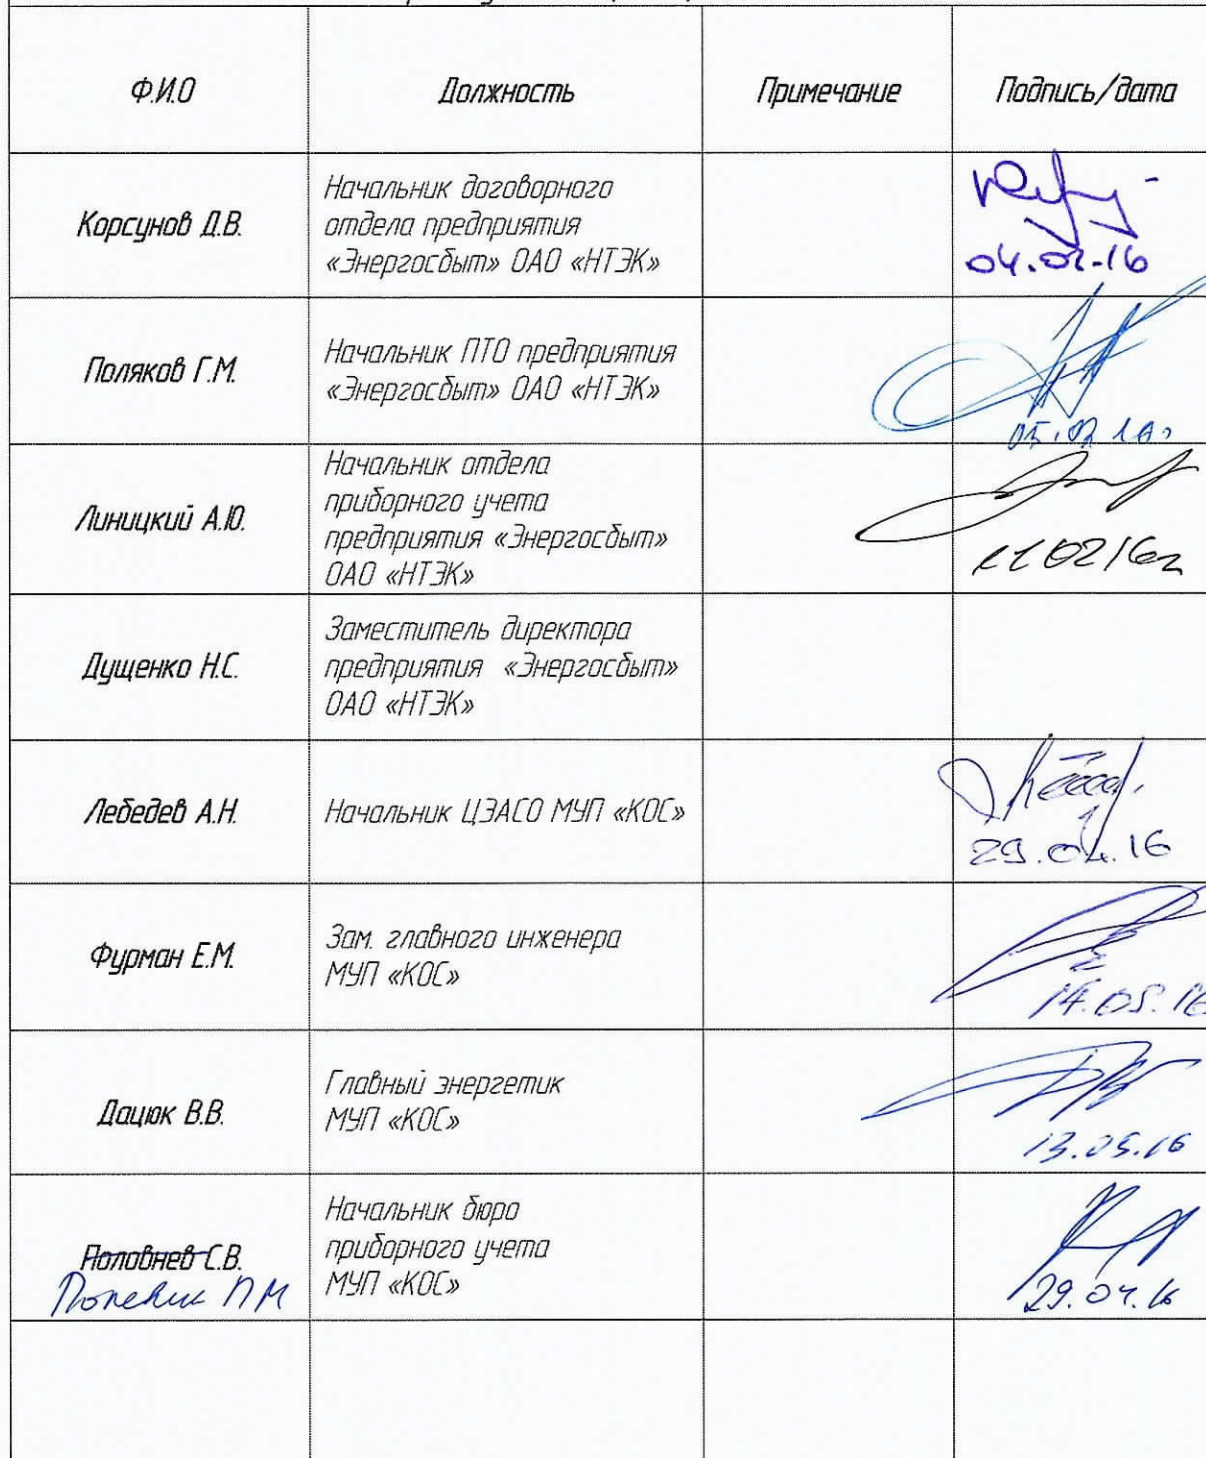 Ф.И.О Должность Примечание Подпись/дата
Корсунов Д.В.
Начальник договорного
отдела предприятия
«Энергосбыт» ОАО «НТЭК»
04.02.16
Поляков Г.М.
Начальник ПТО предприятия
«Энергосбыт» ОАО «НТЭК»
05.02.16г
Линицкий А.Ю.
Начальник отдела
приборного учета
предприятия «Энергосбыт»
ОАО «НТЭК»
11.02.16г
Дущенко Н.С.
Заместитель директора
предприятия «Энергосбыт»
ОАО «НТЭК»
Лебедев А.Н.
Начальник ЦЭАСО МУП «КОС»
29.04.16
Фурман Е.М.
Зам. главного инженера
МУП «КОС»
05.16
Дацюк В.В.
Главный энергетик
МУП «КОС»
13.05.16
Половнев С.В.
П М
Начальник бюро
приборного учета
МУП «КОС»
29.04.16